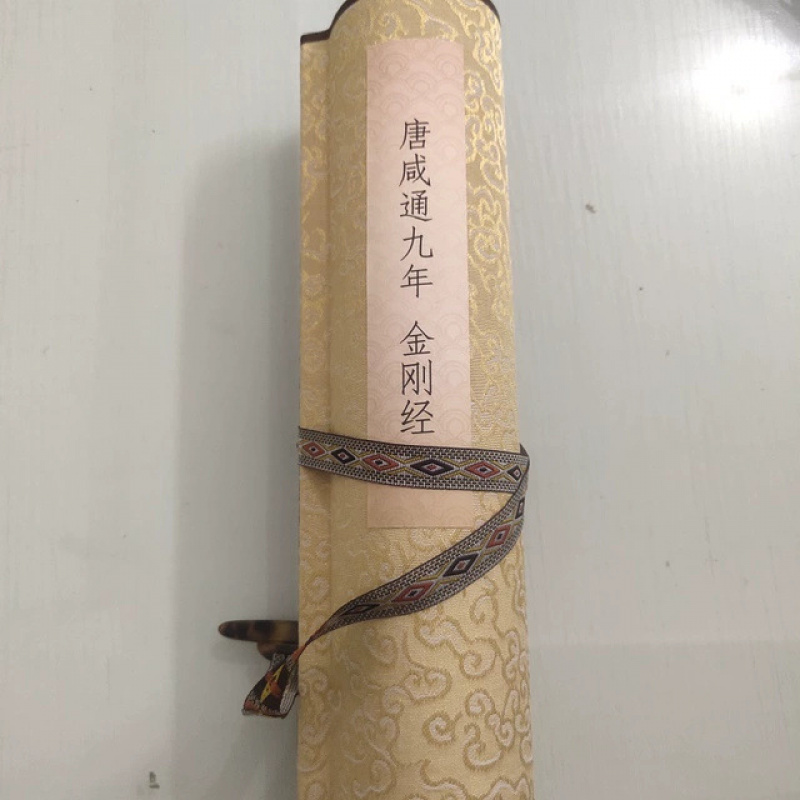 唐咸通九年 金刚经